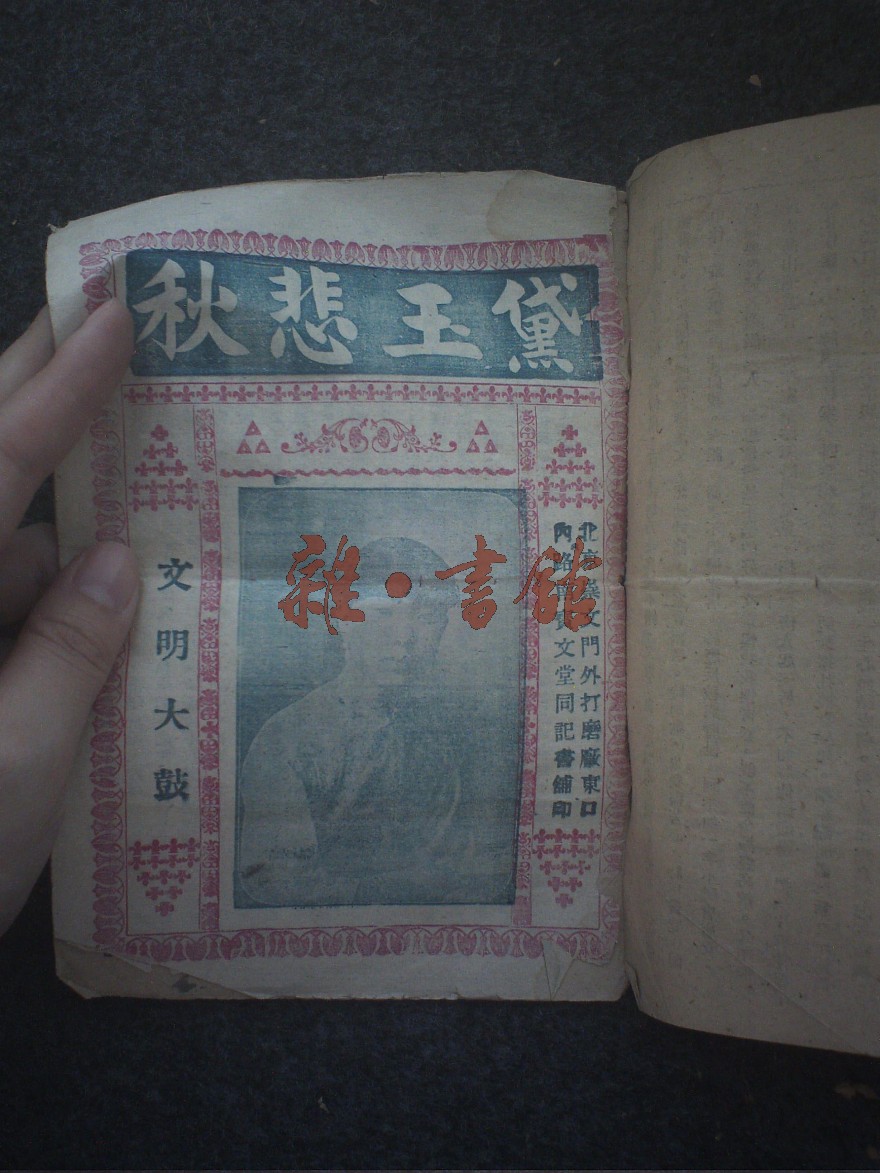 黛玉悲秋
北京崇文門外打磨廠東口
內路南寳文堂同記書舖印
文明大鼓
雜·書館